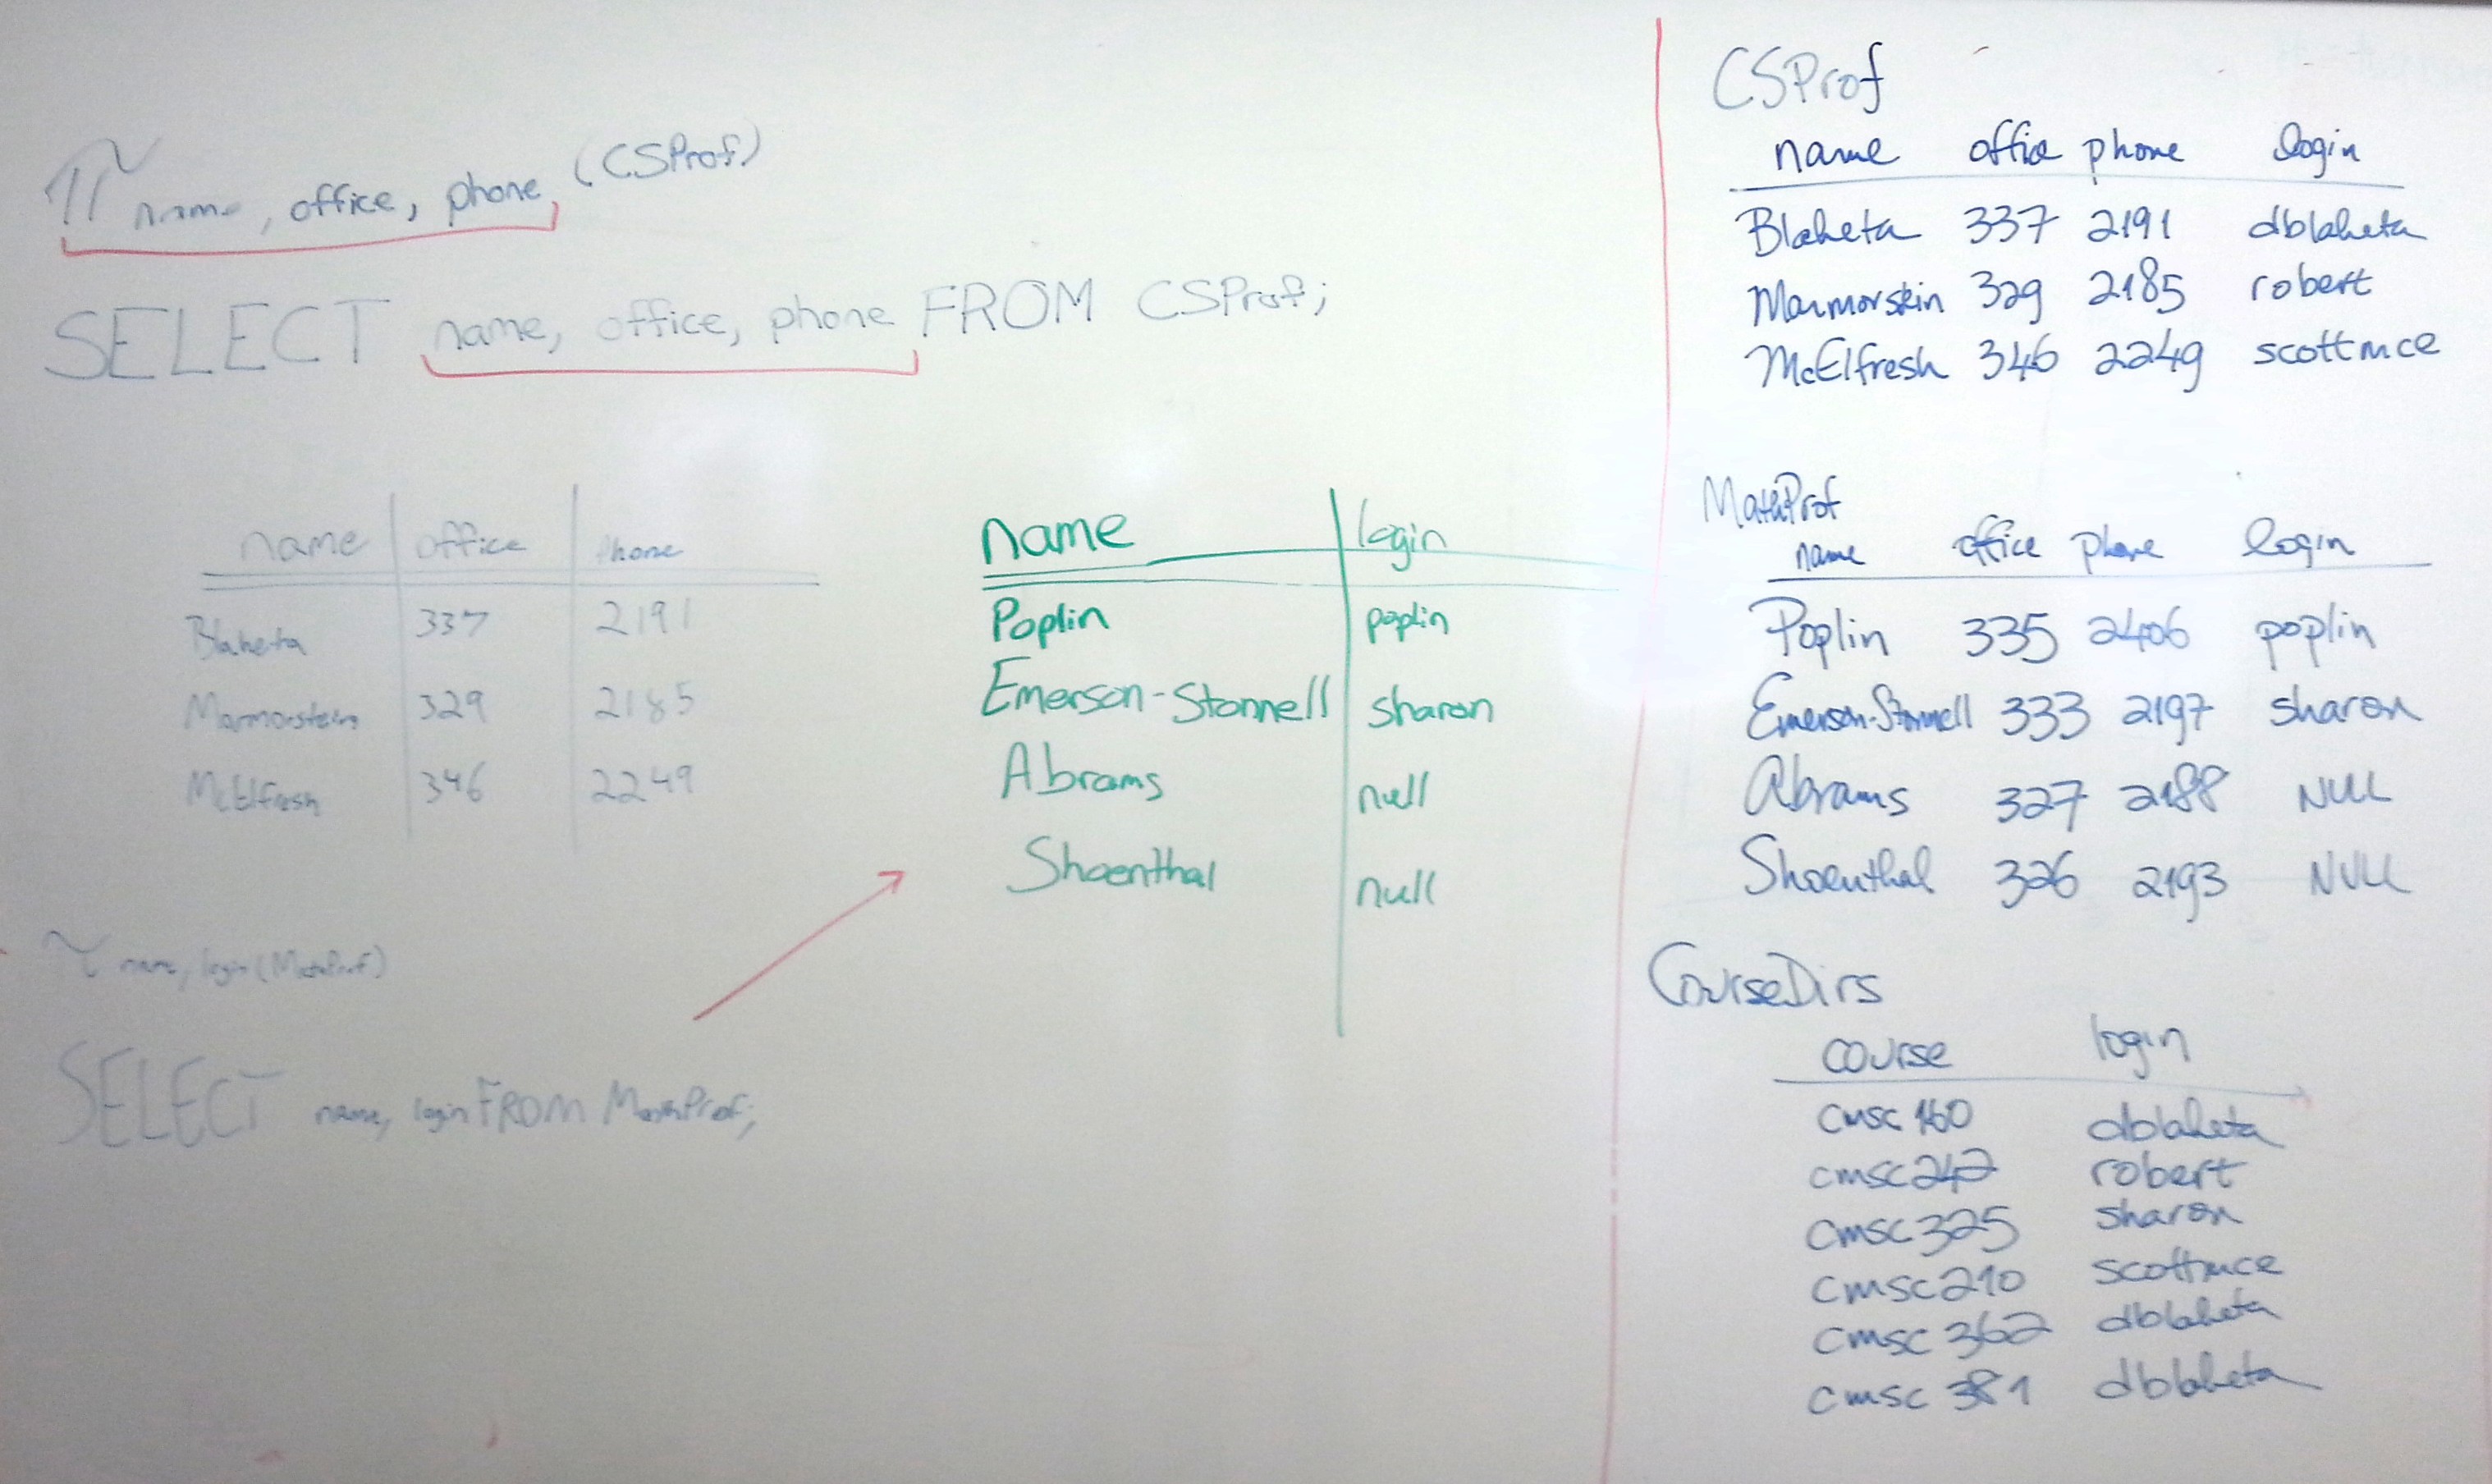 π name, office, phone (CSProf)
SELECT name, office, phone FROM CSProf;
name office phone
Blaheta 337 2191
Marmorstein 329 2185
McElfresh 346 2249
π name, login (MathProf)
SELECT name, login FROM MathProf;
name login
Poplin poplin
Emerson-Stonnell sharon
Abrams null
Shoenthal null
CSProf
name office phone login
Blaheta 337 2191 dblaheta
Marmorstein 329 2185 robert
McElfresh 346 2249 scottmce
MathProf
name office phone login
Poplin 335 2406 poplin
Emerson-Stonnell 333 2197 sharon
Abrams 327 2188 NULL
Shoenthal 326 2193 NULL
CourseDirs
course login
cmsc 160 dblaheta
cmsc 242 robert
cmsc 325 sharon
cmsc 210 scottmce
cmsc 362 dblaheta
cmsc 381 dblaheta